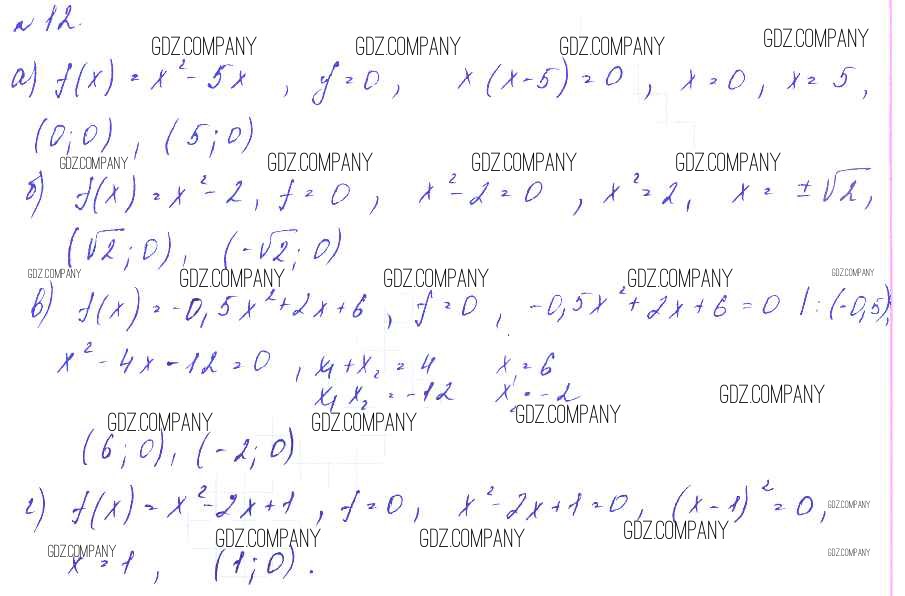 № 12.
GDZ.COMPANY GDZ.COMPANY GDZ.COMPANY GDZ.COMPANY
а) f(x) = x² - 5x , y = 0 , x(x-5) = 0 , x = 0 , x = 5 ,
(0; 0) , (5; 0)
GDZ.COMPANY GDZ.COMPANY GDZ.COMPANY GDZ.COMPANY
б) f(x) = x² - 2 , f = 0 , x² - 2 = 0 , x² = 2 , x = ±√2 ,
(√2 ; 0) , (-√2 ; 0)
GDZ.COMPANY GDZ.COMPANY GDZ.COMPANY GDZ.COMPANY GDZ.COMPANY
в) f(x) = -0,5x² + 2x + 6 , f = 0 , -0,5x² + 2x + 6 = 0 | : (-0,5) ,
x² - 4x - 12 = 0 , x₁ + x₂ = 4 x₁ = 6
x₁ x₂ = -12 x₂ = -2
GDZ.COMPANY GDZ.COMPANY GDZ.COMPANY GDZ.COMPANY
(6 ; 0) , (-2 ; 0)
г) f(x) = x² - 2x + 1 , f = 0 , x² - 2x + 1 = 0 , (x - 1)² = 0 ,
GDZ.COMPANY
GDZ.COMPANY GDZ.COMPANY GDZ.COMPANY GDZ.COMPANY GDZ.COMPANY
x = 1 , (1 ; 0) .